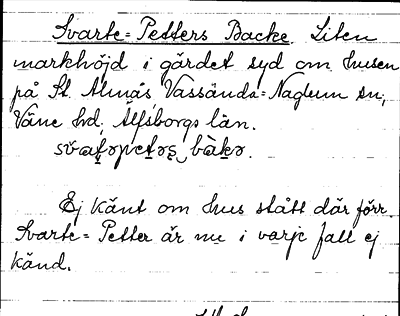 Svarte=Petters Backe. Liten
markhöjd i gärdet syd om husen
på St. Almås, Vassända=Naglum sn,
Väne hd, Älfsborgs län.
Ej känt om hus stått där förr.
Svarte=Petter är nu i varje fall ej
känd.